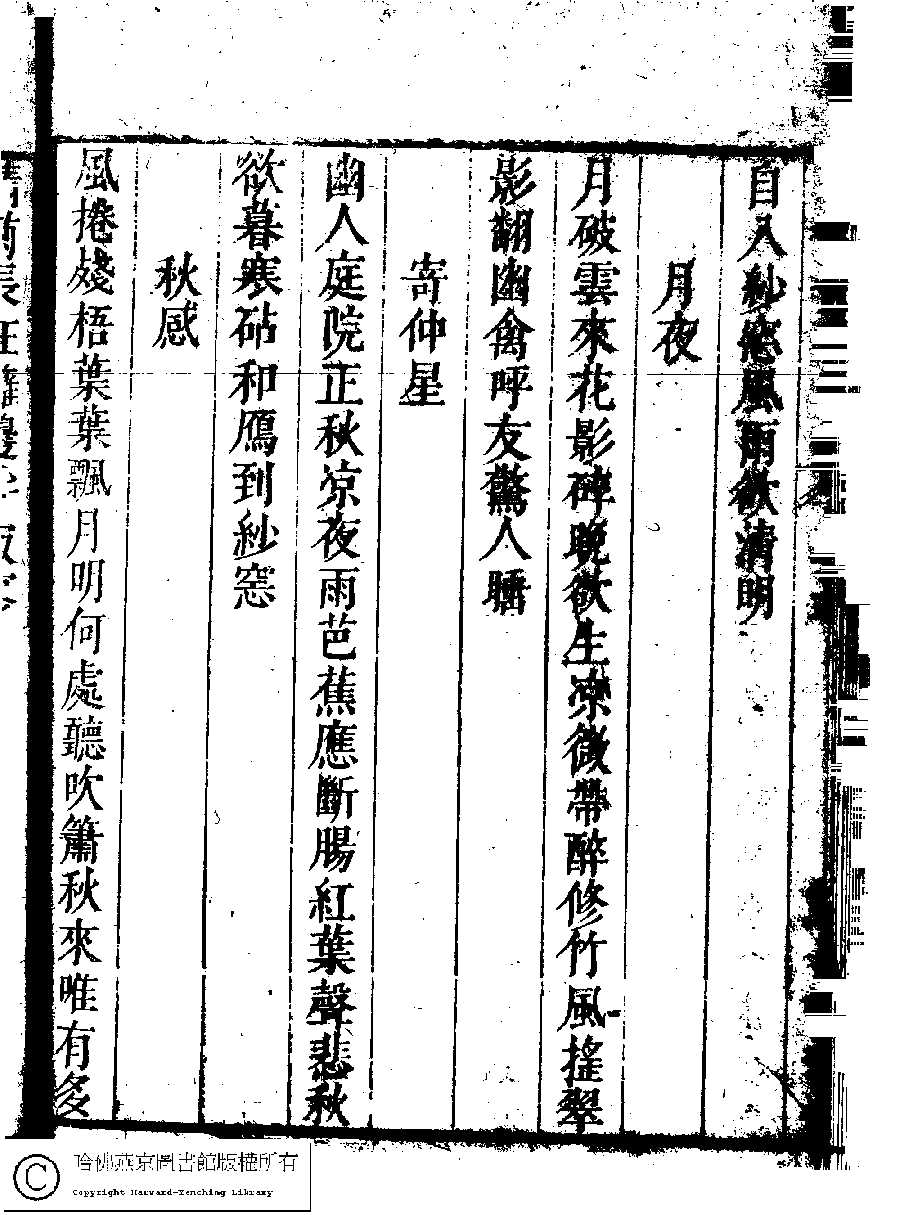 自入紗窓風雨欲清明
月夜
月破雲來花影碎晚欲生凉微帶醉修竹風搖翠
影翻幽禽呼友驚人睡
寄仲星
幽人庭院正秋凉夜雨芭蕉應斷腸紅葉聲悲秋
欲暮寒砧和鴈到紗窓
秋感
風捲殘梧葉葉飄月明何處聽吹簫秋來唯有多
哈佛燕京圖書館版權所有
Copyright Harvard-Yenching Library